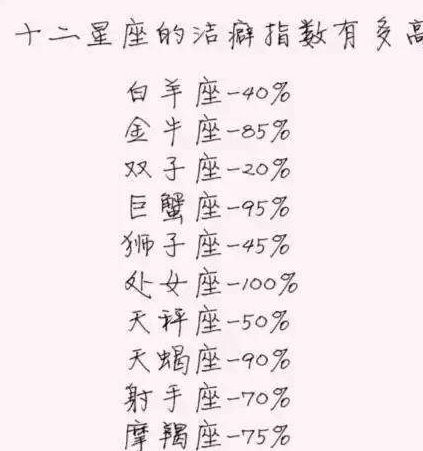 十二星座的洁癖指数有多高
白羊座-40%
金牛座-85%
双子座-20%
巨蟹座-95%
狮子座-45%
处女座-100%
天秤座-50%
天蝎座-90%
射手座-70%
摩羯座-75%